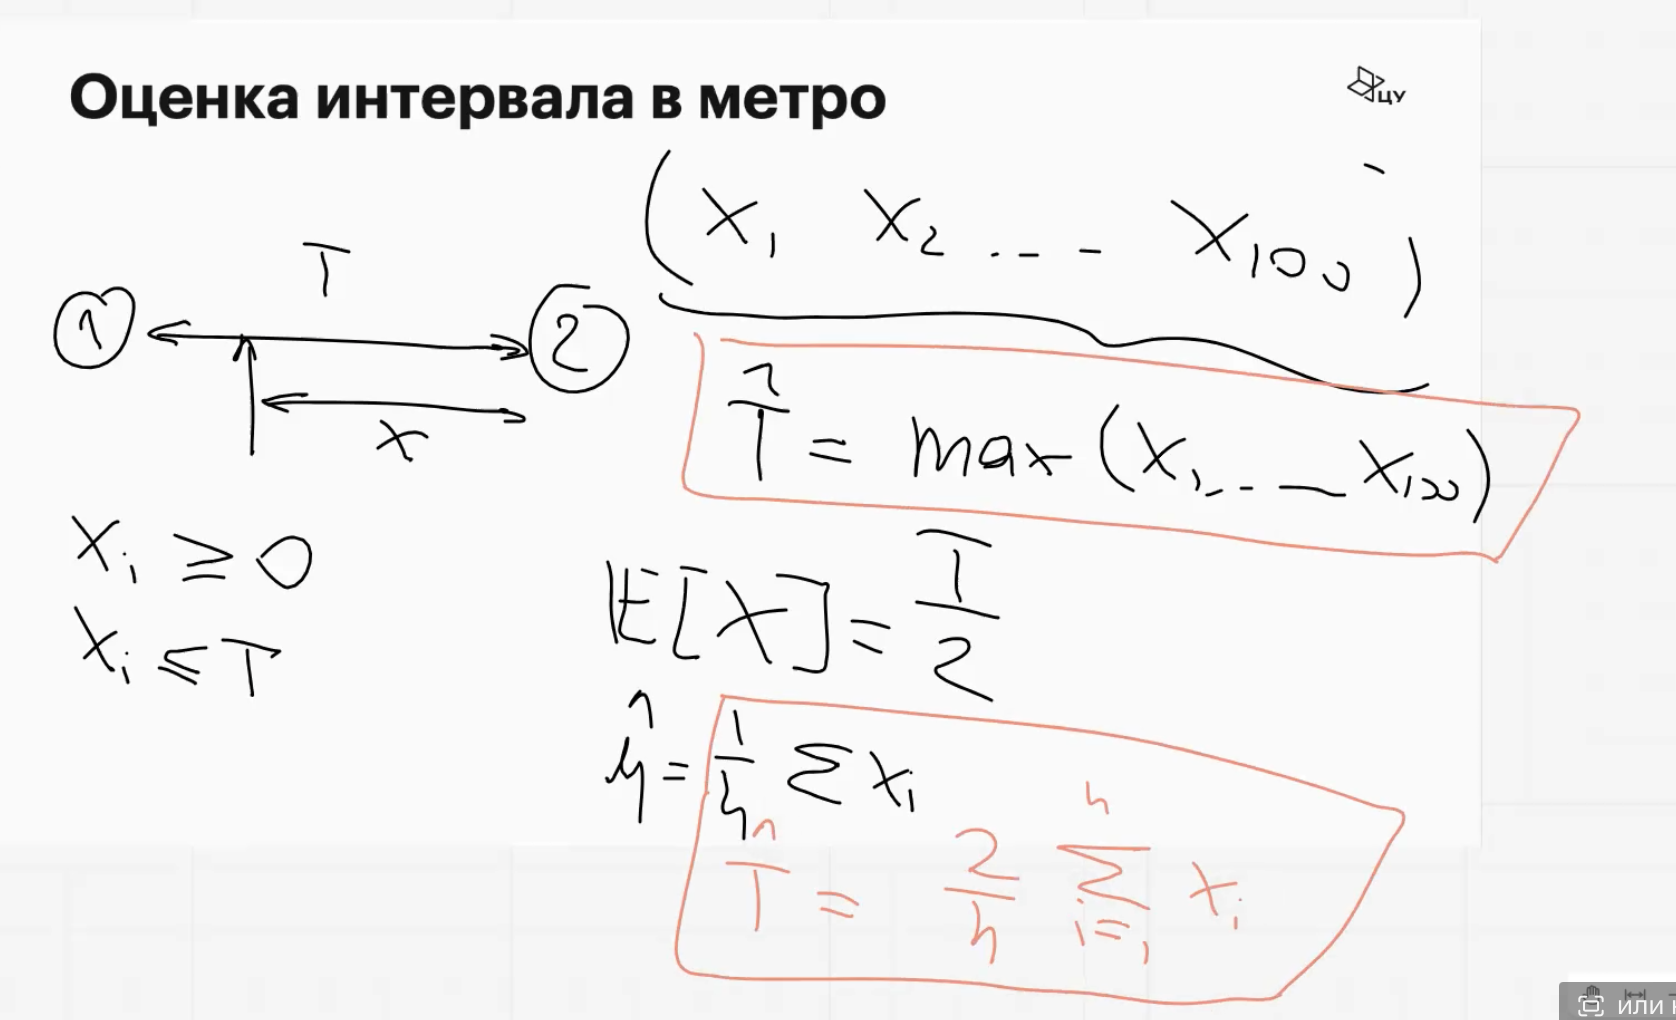 Оценка интервала в метро
ЦУ
(X₁ X₂ ... - X₁₀₀)
T
1 2
x
T̂ = max(X₁, .. _ X₁₀₀)
Xᵢ ≥ 0
Xᵢ ≤ T
𝔼[X] = T/2
μ̂ = 1/n Σ xᵢ
T̂ = 2/n Σⁿᵢ₌₁ xᵢ
или